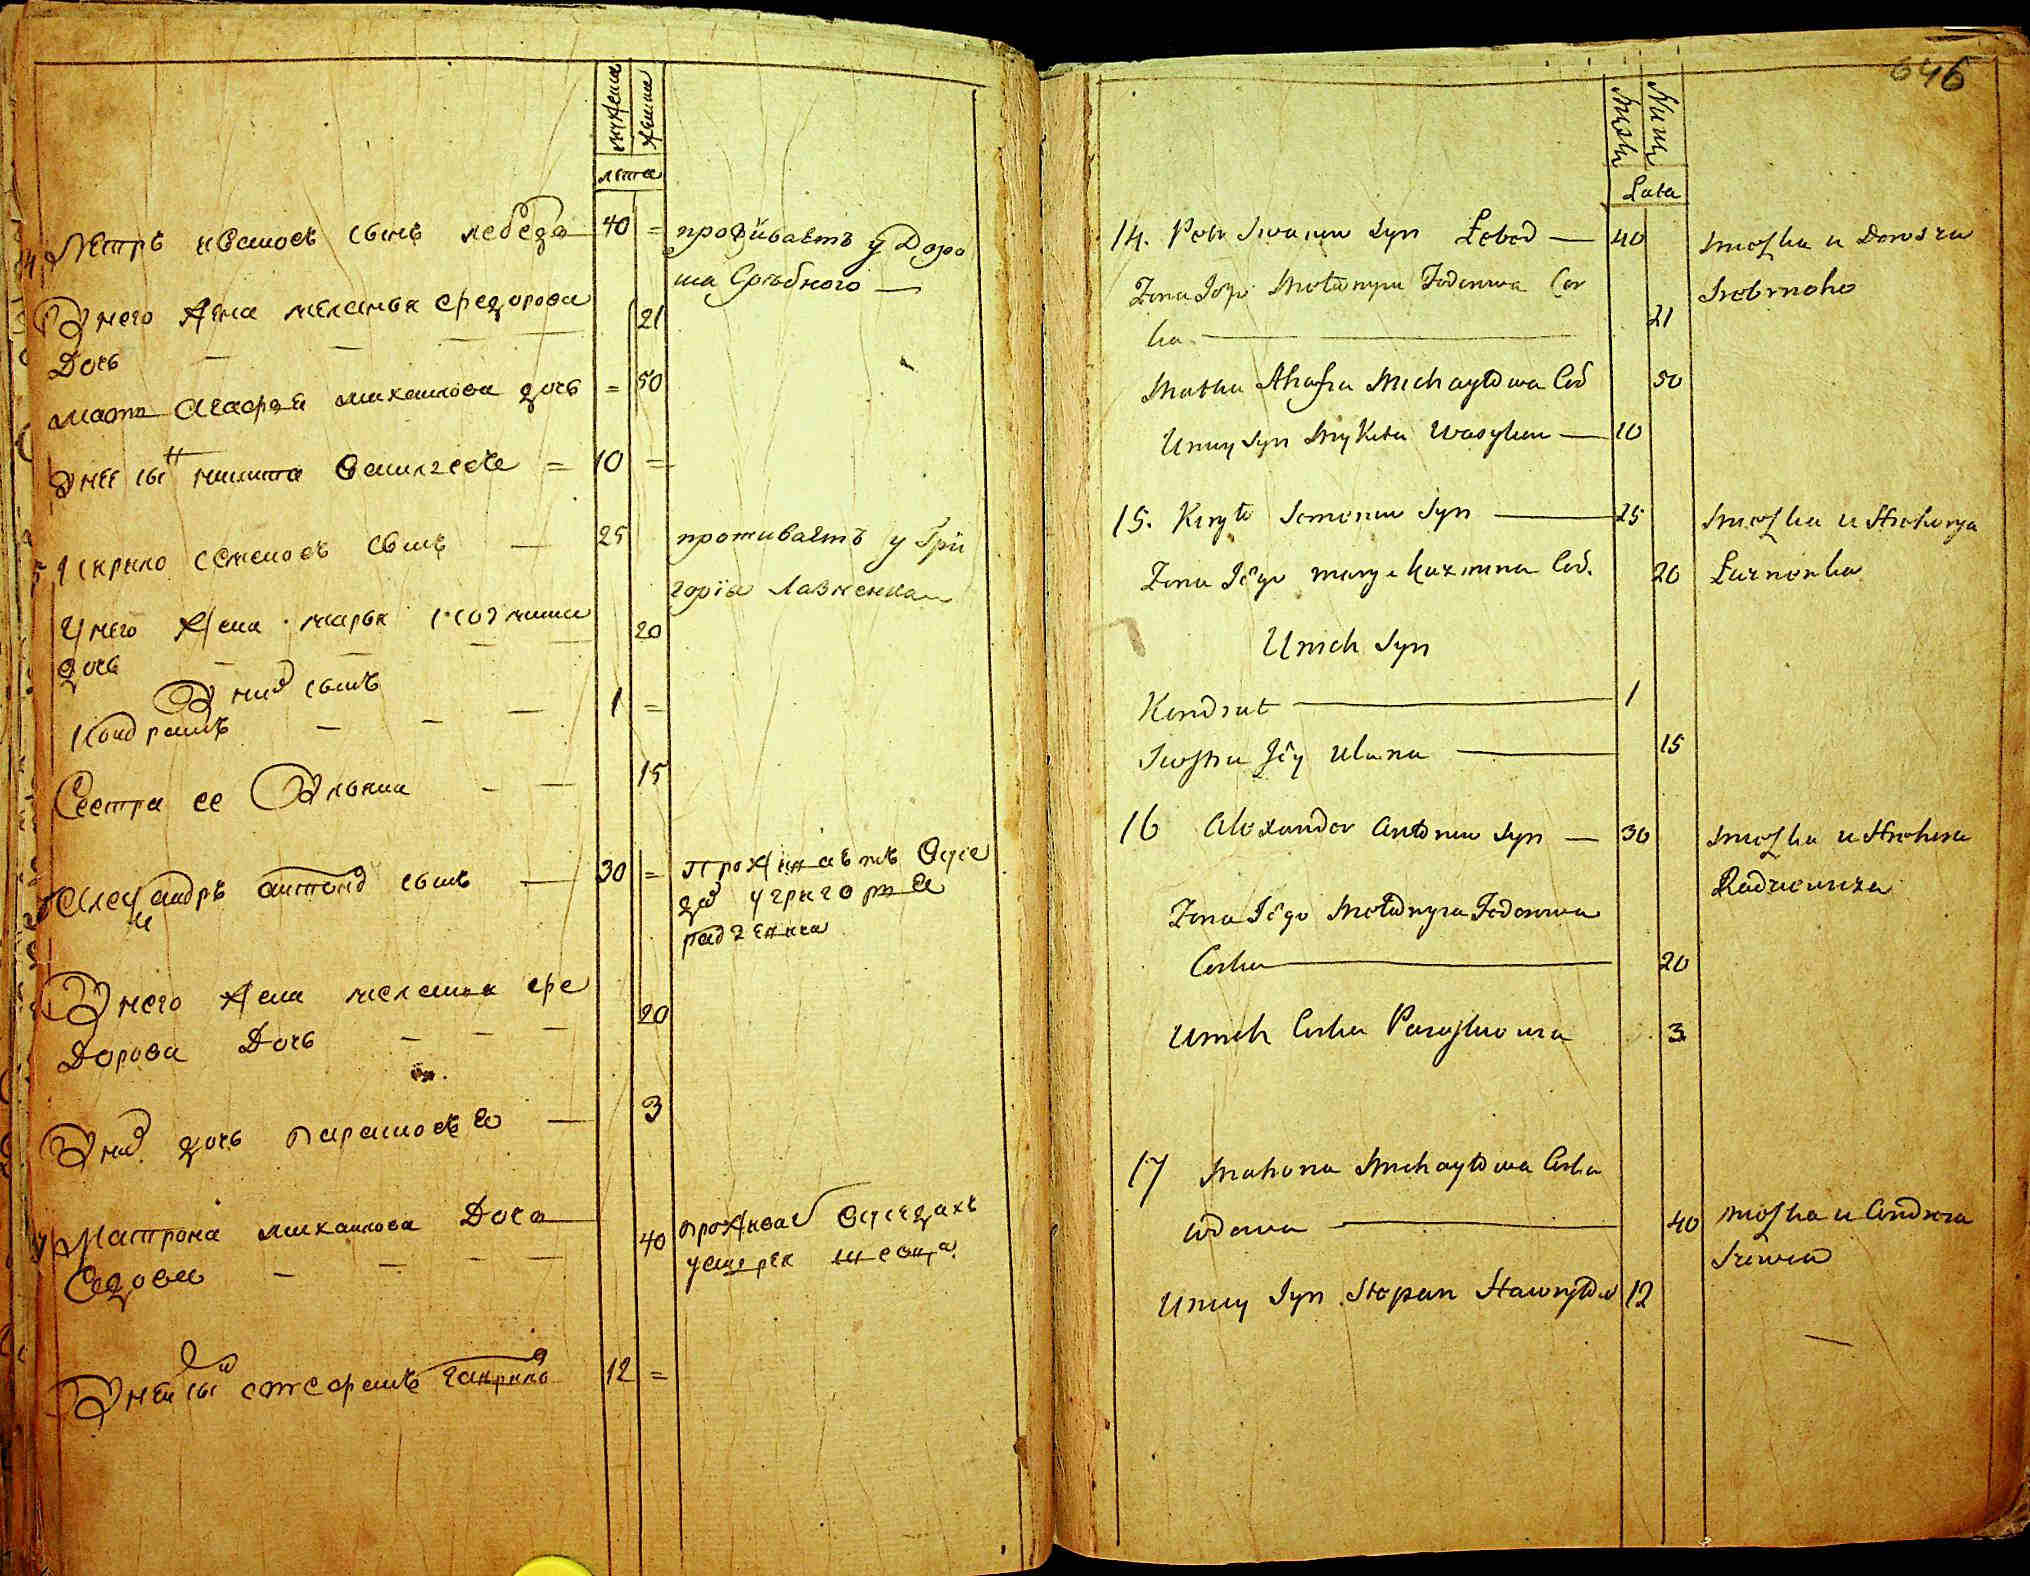 мужеска
женска
лета
14 Петръ ивановъ сынъ лебедь 40 = проживаетъ у Доро
ша Сребного —
У него жена меланья федорова 21
Дочь — — —
мати агафья михаилова дочь = 50
У неё сынъ никита василевъ = 10 =
15 Кирило семеновъ сынъ — 25 проживаетъ у Гри
горія Лазненка
У него жена марья козмина 20
дочь — — —
У них сынъ
Кондратъ — — — 1 =
Сестра ее Ульяна — — 15
Александръ антонов сынъ — 30 = Проживаетъ
у григория
радченка
У него жена меланья фе
дорова Дочь — — — 20
У них дочь парасковѣя — 3
17 Матрона михаилова Дочь 40 прожива
у андрея шевца
Вдова — — — —
У неи сынъ стефанъ гаврило 12 =
646
Męska
Żeńska
Lata
14. Petr Iwanow Syn Łebed — 40 Mieszka u Dorosza
Srebrnoho
Żona Jego Mełanyia Fedorowa Cor
ka — 21
Matka Ahafia Michayłowa Cor 50
U niey Syn Mykita Wasylew — 10
15. Kiryło Semenow Syn — 25 Mieszka u Hrehorya
Łaznenka
Żona Jego Marya Kuzmina Cor. 20
U nich Syn
Kondrat — 1
Siostra Jey Ulana — 15
16 Alexander Antonow Syn — 30 Mieszka u Hrehora
Radczenka
Żona Jego Mełanyia Fedorowa
Corka — 20
U nich Corka Paraskowia 3
17 Matrona Michayłowa Corka
wdowa — 40 Mieszka u Andreia
Szewca
U niey Syn Stepan Hawryłow 12